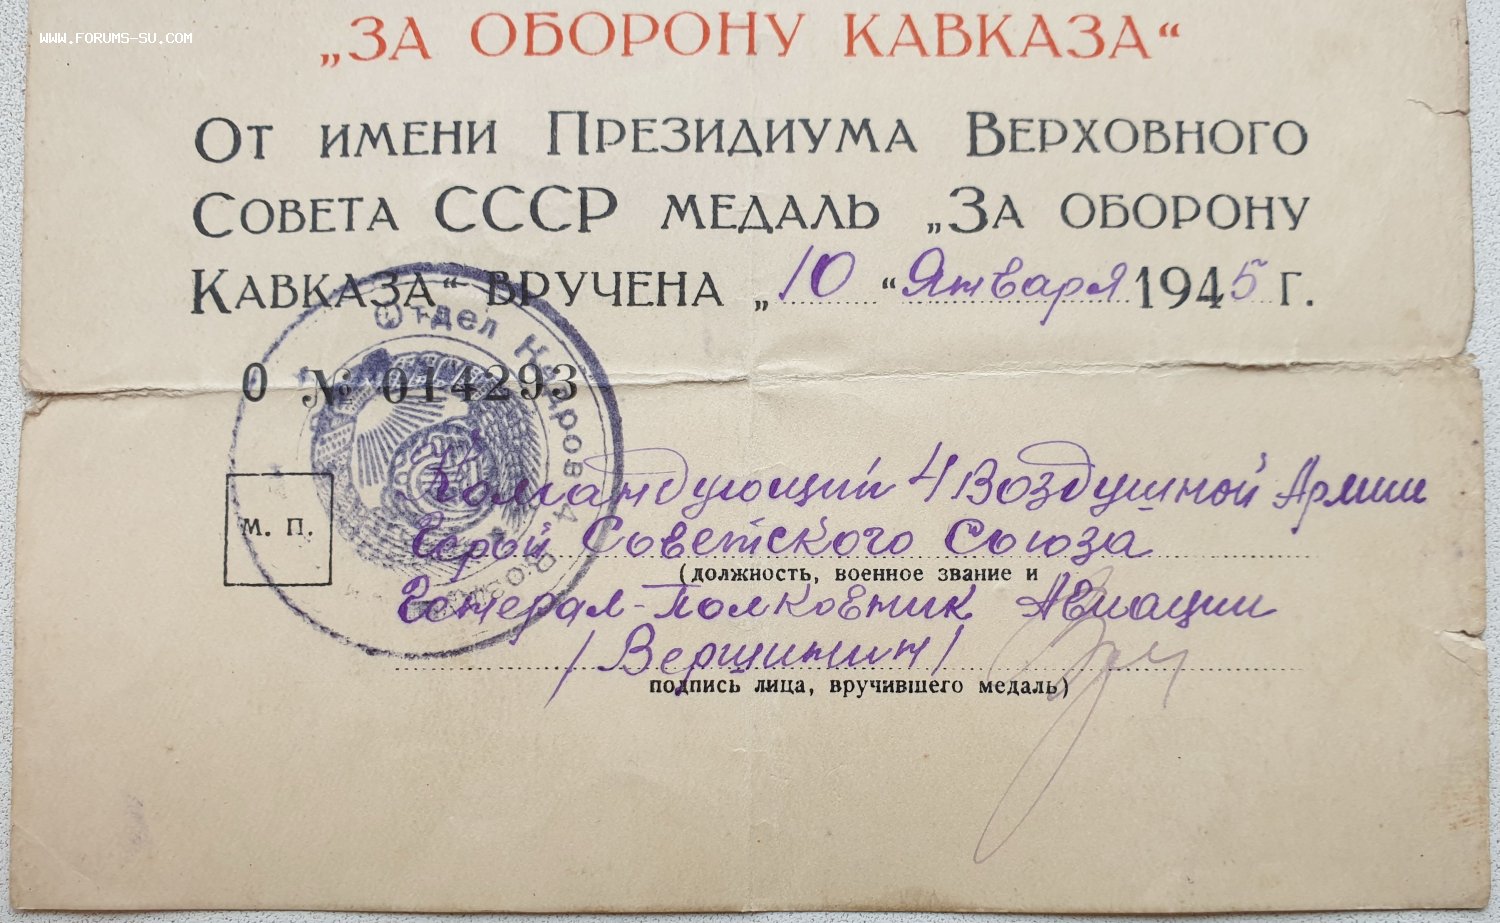 WWW.FORUMS-SU.COM
„ЗА ОБОРОНУ КАВКАЗА“
ОТ ИМЕНИ ПРЕЗИДИУМА ВЕРХОВНОГО
СОВЕТА СССР МЕДАЛЬ „ЗА ОБОРОНУ
КАВКАЗА“ ВРУЧЕНА „10“ Января 1945 г.
Отдел Кадров 4 Возд
О № 014293
Командующий 4 Воздушной Армии
М. П.
Герой Советского Союза
(должность, военное звание и
Генерал-Полковник Авиации
/Вершинин/
подпись лица, вручившего медаль)